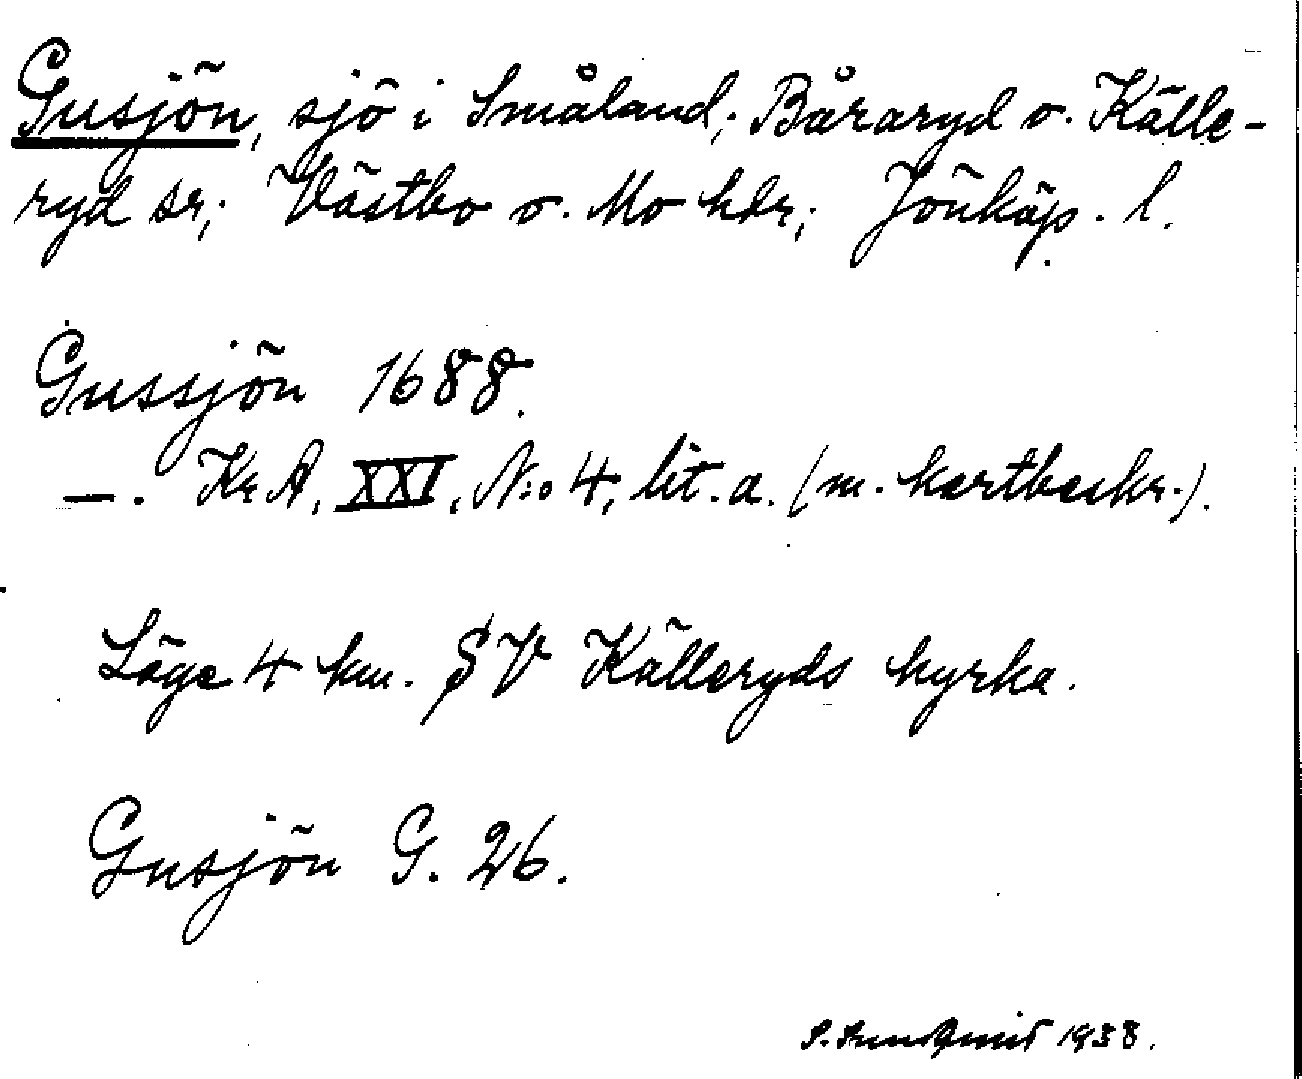 Gusjön, sjö i Småland; Båraryd o. Källe-
ryd sr; Västbo o. Mo hdr; Jönköp. l.
Gussjön 1688.
—. Kr A, XXI, N:o 4, lit. a. (m. kartbeskr.).
Läge 4 km. SV Källeryds kyrka.
Gusjön G. 26.
S. Sundqvist 1938.